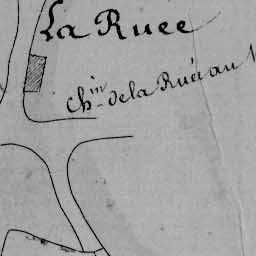 La Ruee
Ch.in de la Ruée au